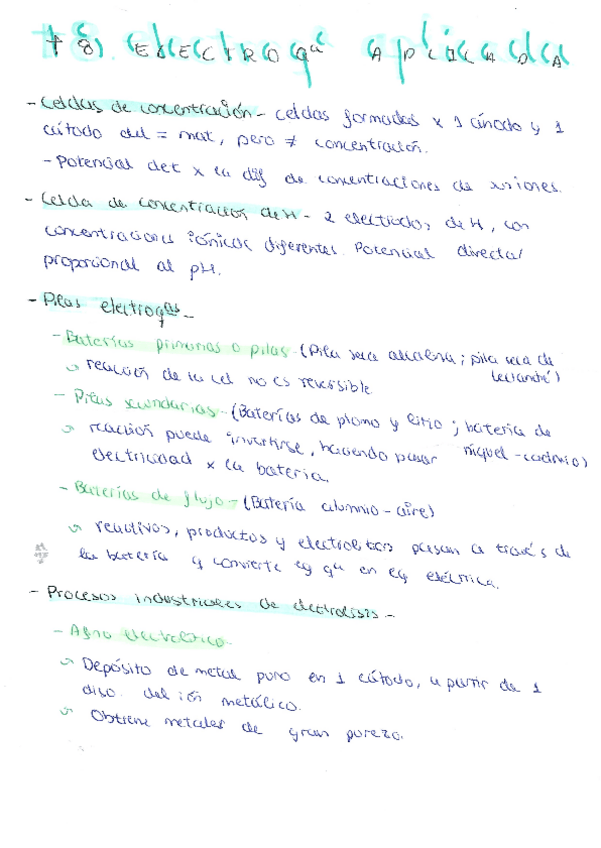 t8) ELECTROQᵃ APLICADA
- Celdas de concentración - celdas formadas x 1 ánodo y 1
cátodo del = mat, pero ≠ concentración.
- Potencial det x la dif de concentraciones de iones.
- Celda de concentración de H - 2 electrodos de H, con
concentraciones iónicas diferentes. Potencial directa/
proporcional al pH.
- Pilas electroqᵃˢ -
- Baterías primarias o pilas - (Pila seca alcalina; pila seca de
Leclanché)
reacción de la cel no es reversible.
- Pilas secundarias - (Baterías de plomo y litio; batería de
níquel-cadmio)
reacción puede invertirse, haciendo pasar
electricidad x la batería.
- Baterías de flujo - (Batería aluminio-aire)
reactivos, productos y electrolitos pasan a través de
la batería y convierte eg qᵃ en eg eléctrica.
- Procesos industriales de electrolisis -
- Afino electrolítico
Depósito de metal puro en 1 cátodo, a partir de 1
diso. del ión metálico.
Obtiene metales de gran pureza.